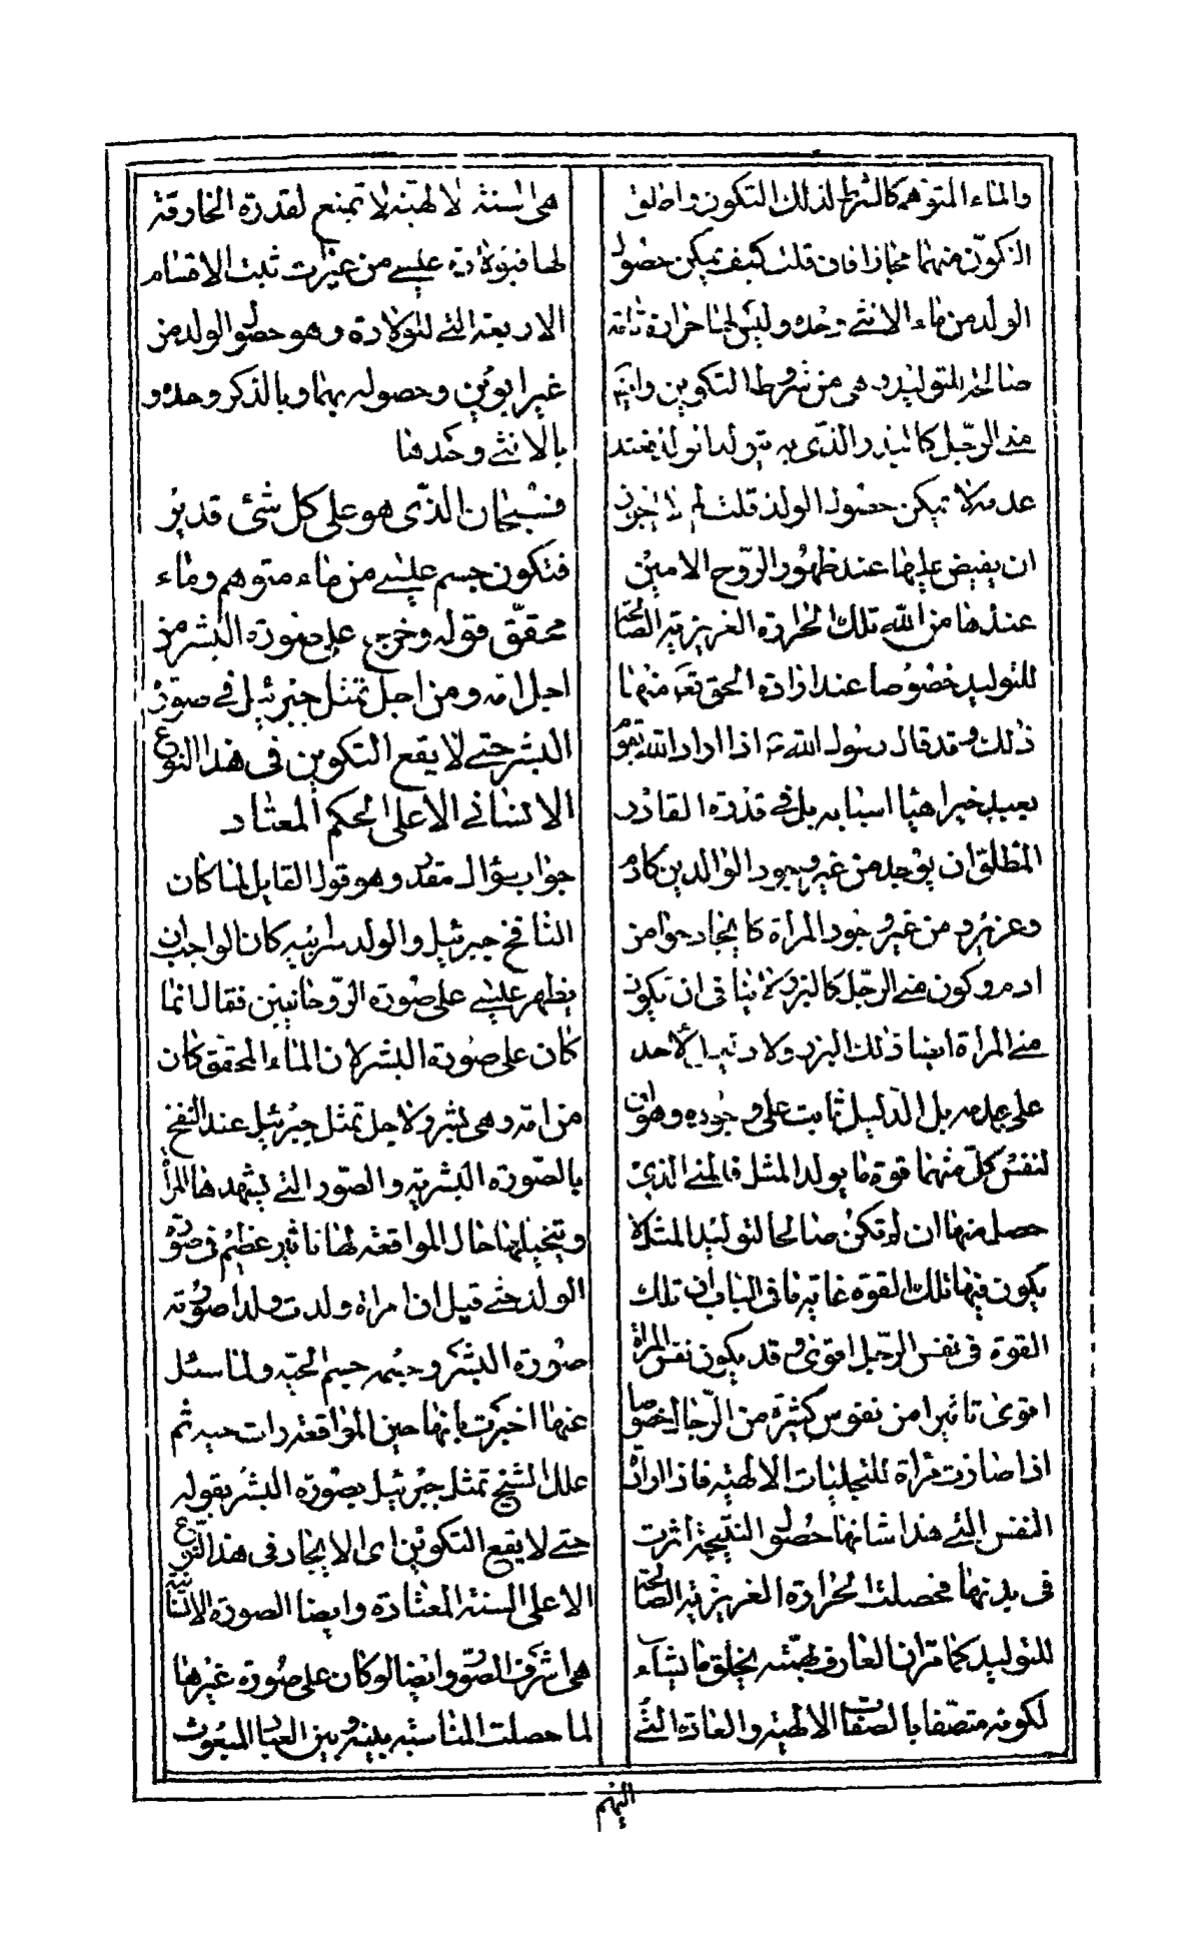 والماء المتوهم كالشرط لذلك التكون واطلق
التكون منهما مجازا فان قلت كيف يمكن حصول
الولد من ماء الانثى وحده وليس لها حرارة تامة
صالحة للتوليد وهى من شروط التكوين وايضا
منى الرجل كالبذر والذى به يتولد المولد فعند
عدمه لا يمكن حصول الولد قلت لم لا يجوز
ان يفيض عليها عند ظهور الروح الامين
عندها من الله تلك الحرارة الغريزية الصالحة
للتوليد خصوصا عند ارادة الحق تعه منهما
ذلك وقد قال رسول الله ص اذا اراد الله تعالى
بعبد خيرا هيا اسبابه بل فى قدرة القادر
المطلق ان يوجد من غير وجود الوالدين كادم
وعزير ومن غير وجود المراة كايجاد حوا من
ادم وكون منى الرجل كالبزر لا ينافى ان يكون
منى المراة ايضا ذلك البزر ولا دليل لاحد
على عدمه بل الدليل ثابت على وجوده وهو ان
لنفس كل منهما قوة ما يولد المثل فالمنى الذى
حصل منها ان لم تكن صالحا لتوليد المثل لا
يكون فيها تلك القوة غاية ما فى الباب ان تلك
القوة فى نفس الرجل اقوى وقد يكون نفس المراة
اقوى تاثيرا من نفوس كثيرة من الرجال خصوصا
اذا صارت مراة للتجليات الالهية فاذا ارادت
النفس التى هذا شانها حصول النتيجة اثرت
فى بدنها فحصلت الحرارة الغريزية الصالحة
للتوليد كما مر ان العارف بهمته يخلق ما يشاء
لكونه متصفا بالصفات الالهية والعادة التى
هى سنة الالهية لا تمنع لقدرة الخارقة
لها فبولادة عيسى من غير اب تمت الاقسام
الاربعة التى للولادة وهو حصول الولد من
غير ابوين وحصوله بهما وبالذكر وحده و
بالانثى وحدها
فسبحان الذى هو على كل شئ قدير
فتكون جسم عيسى من ماء متوهم وماء
محقق قوله وخرج على صورة البشر من
اجل امه ومن اجل تمثل جبرئيل فى صورة
البشر حتى لا يقع التكوين فى هذا النوع
الانسانى الا على الحكم المعتاد
جواب سؤال مقدر وهو قول القايل لما كان
النافخ جبرئيل والولد سر ابيه كان الواجب ان
يظهر عيسى على صورة الروحانيين فقال انما
كان على صورة البشر لان الماء المحقق كان
من امه وهى بشر ولاجل تمثل جبرئيل عند النفخ
بالصورة البشرية والصور التى يشهدها المراة
ويتخيلها حال المواقعة لها تاثير عظيم فى صورة
الولد حتى قيل ان امراة ولدت ولدا صورته
صورة البشر وجسمه جسم الحية ولما سئل
عنها اخبرت بانها حين المواقعة رات حية ثم
علل الشيخ تمثل جبرئيل بصورة البشر بقوله
حتى لا يقع التكوين اى الايجاد فى هذا النوع
الا على السنة المعتادة وايضا الصورة الانسانية
هى اشرف الصور وايضا لو كان على صورة غيرها
لما حصلت المناسبة بينه وبين العباد المبعوث
اليهم